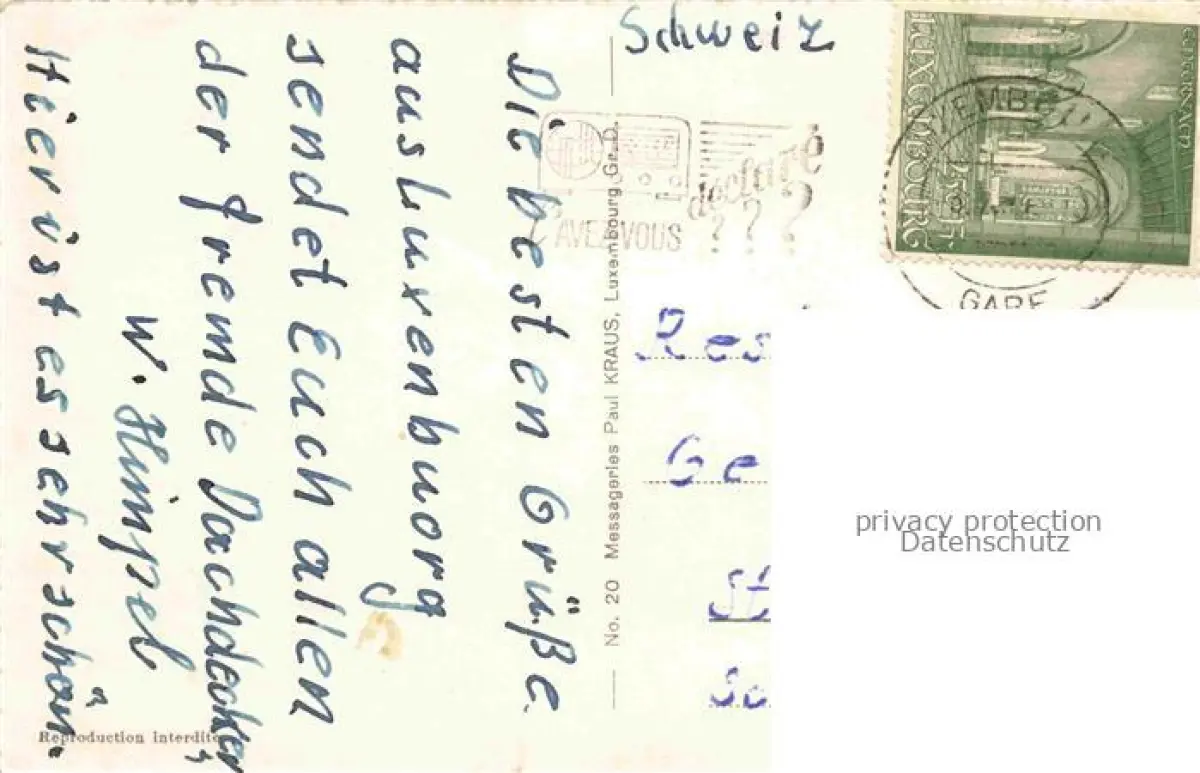 Die besten Grüße
aus Luxenbuorg
sendet Euch allen
der fremde Dachdecker,
W. Himpel
Hier ist es sehr schön.
Reproduction interdite
No. 20 Messageries Paul KRAUS, Luxembourg, Gr.-D.
Schweiz
AVEZ-VOUS
déclaré
???
LUXEMBOURG
GARE
Res
Ge
St
privacy protection
Datenschutz